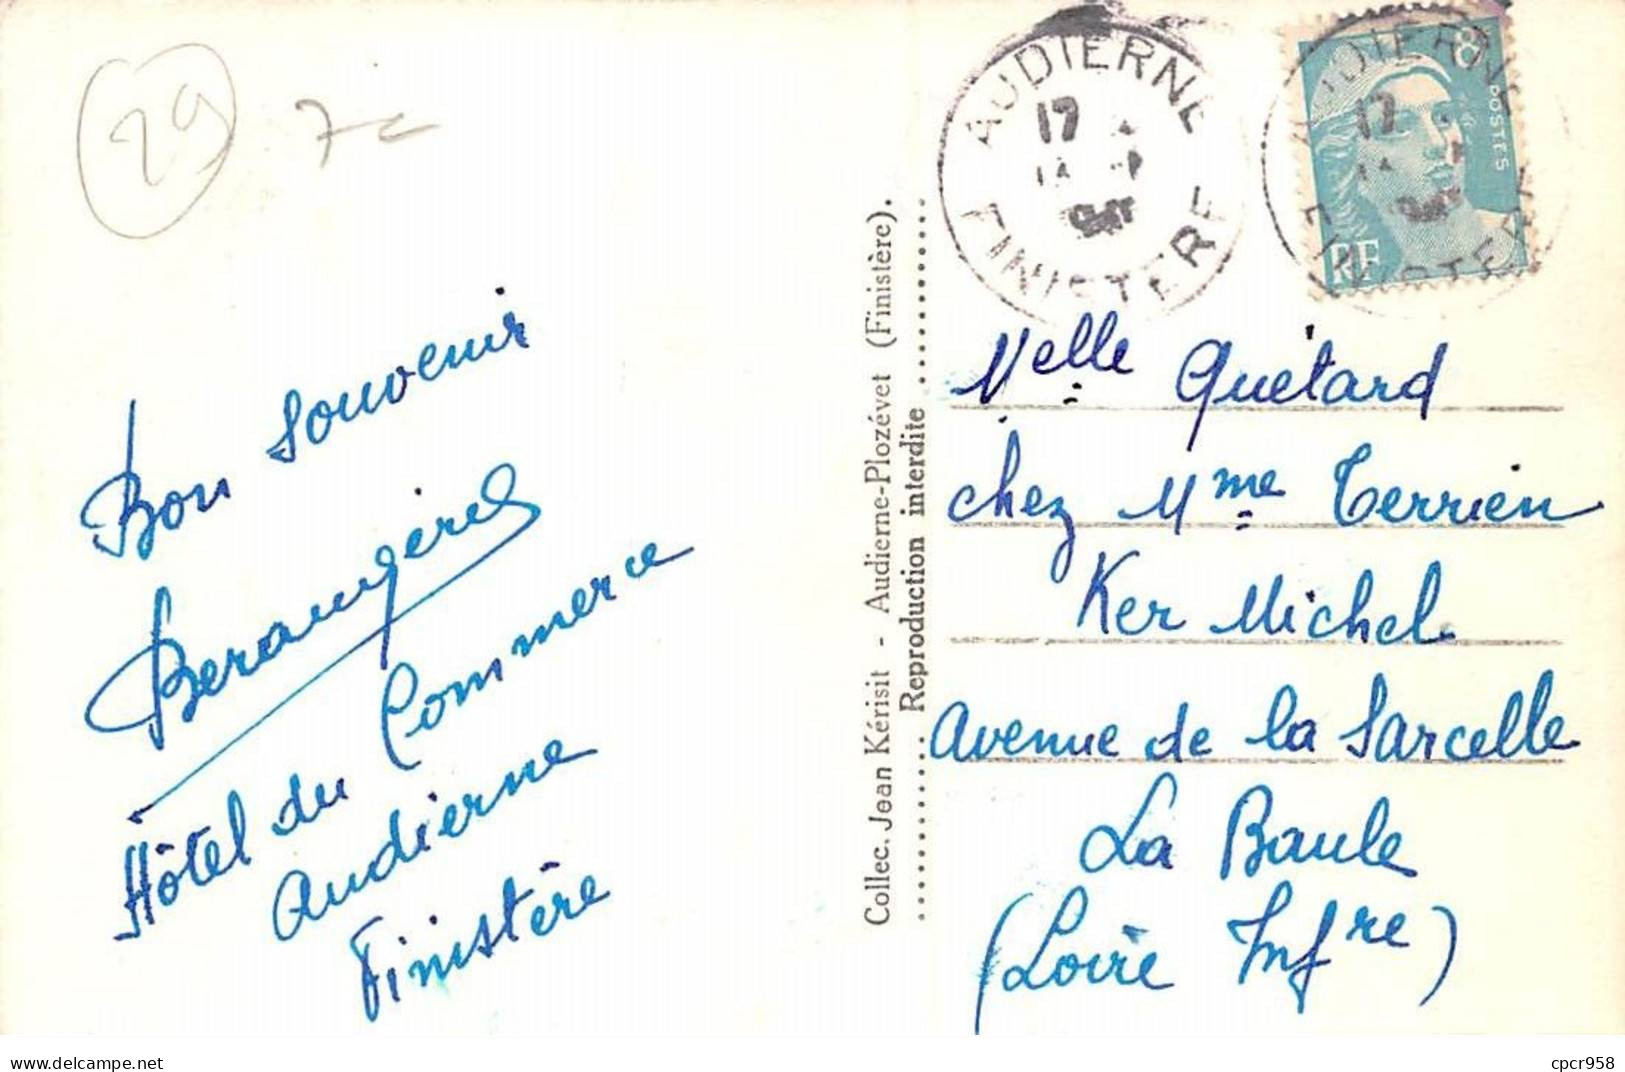 29
7 c
Bon souvenir
Berangère
Hôtel du Commerce
Audierne
Finistère
Collec. Jean Kérisit - Audierne-Plozévet (Finistère).
Reproduction interdite
AUDIERNE
17
FINISTERE
8F
POSTES
RF
AUDIERNE
17
FINISTERE
Melle Quétard
chez Mme Terrien
Ker Michel
Avenue de la Sarcelle
La Baule
(Loire Infre)
www.delcampe.net
cpcr958